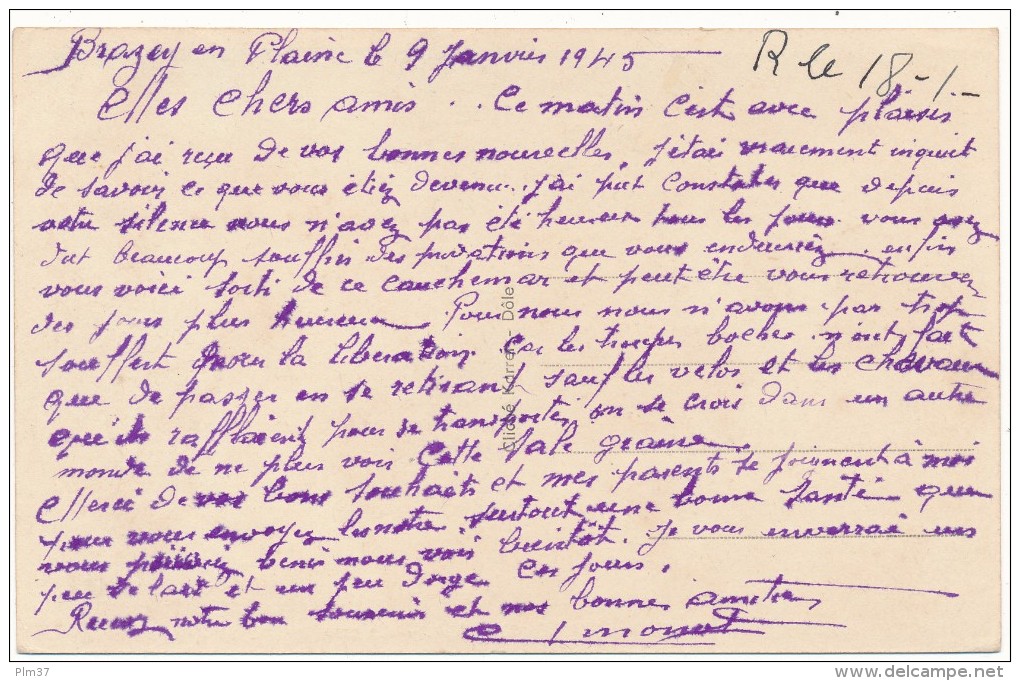 Brazey en Plaine le 9 Janvier 1945
R le 18-1.-
Mes Chers amis.. Ce matin C'est avec plaisir
que j'ai reçu de vos bonnes nouvelles, j'étais vraiement inquiet
de savoir ce que vous étiez devenu. J'ai put Constater que depuis
votre silence vous n'avez pas été heureux tous les jours. vous avez
dut beaucoup souffrir des privations que vous enduriez. enfin
vous voici sorti de ce cauchemar et peut être vous retrouverez
des jours plus heureux. Pour nous nous n'avons pas trop
souffert pour la libération. Car les troupes boches n'ont fait
que de passer en se retirant sauf les vélos et les chevaux
qu'ils rafflaient pour se transporter, on se crois dans un autre
monde de ne plus voir Cette sale graine.
Merci de vos bons souhaits et mes parents se joignent à moi
pour vous envoyer les notre surtout une bonne santé que
vous puissiez venir nous voir bientôt. Je vous enverrai un
peu de lard et un peu Ces jours.
Recevez notre bon souvenir et nos bonnes amitiés
Cliché Karrer - Dôle
Plm37
delcampe.net